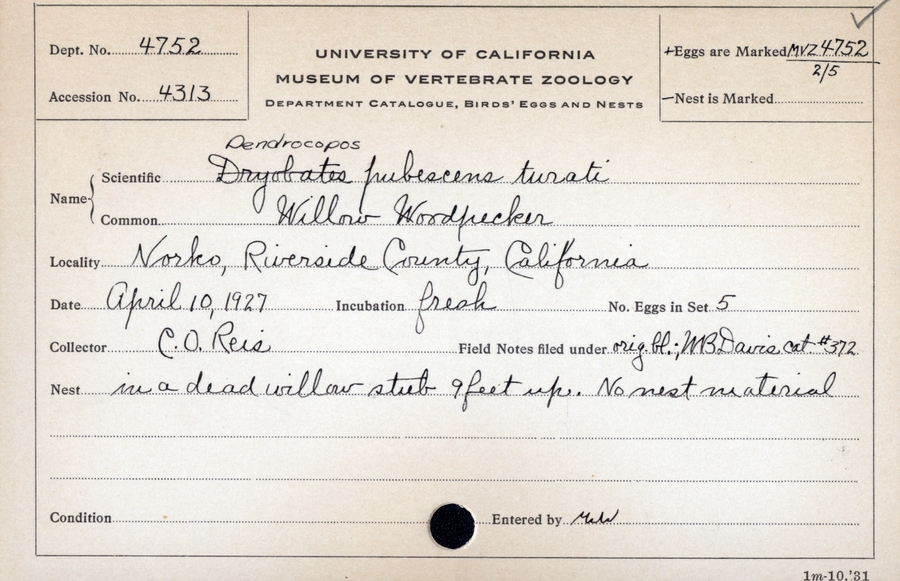 Dept. No. 4752
Accession No. 4313
UNIVERSITY OF CALIFORNIA
MUSEUM OF VERTEBRATE ZOOLOGY
DEPARTMENT CATALOGUE, BIRDS' EGGS AND NESTS
+Eggs are Marked MVZ 4752
2/5
—Nest is Marked
Dendrocopos
Name Scientific Dryobates pubescens turati
Common Willow Woodpecker
Locality Norko, Riverside County, California
Date April 10, 1927 Incubation fresh No. Eggs in Set 5
Collector C. O. Reis Field Notes filed under orig. bl.; MB Davis cat #372
Nest in a dead willow stub 9 feet up. No nest material
Condition Entered by
1m-10,'31